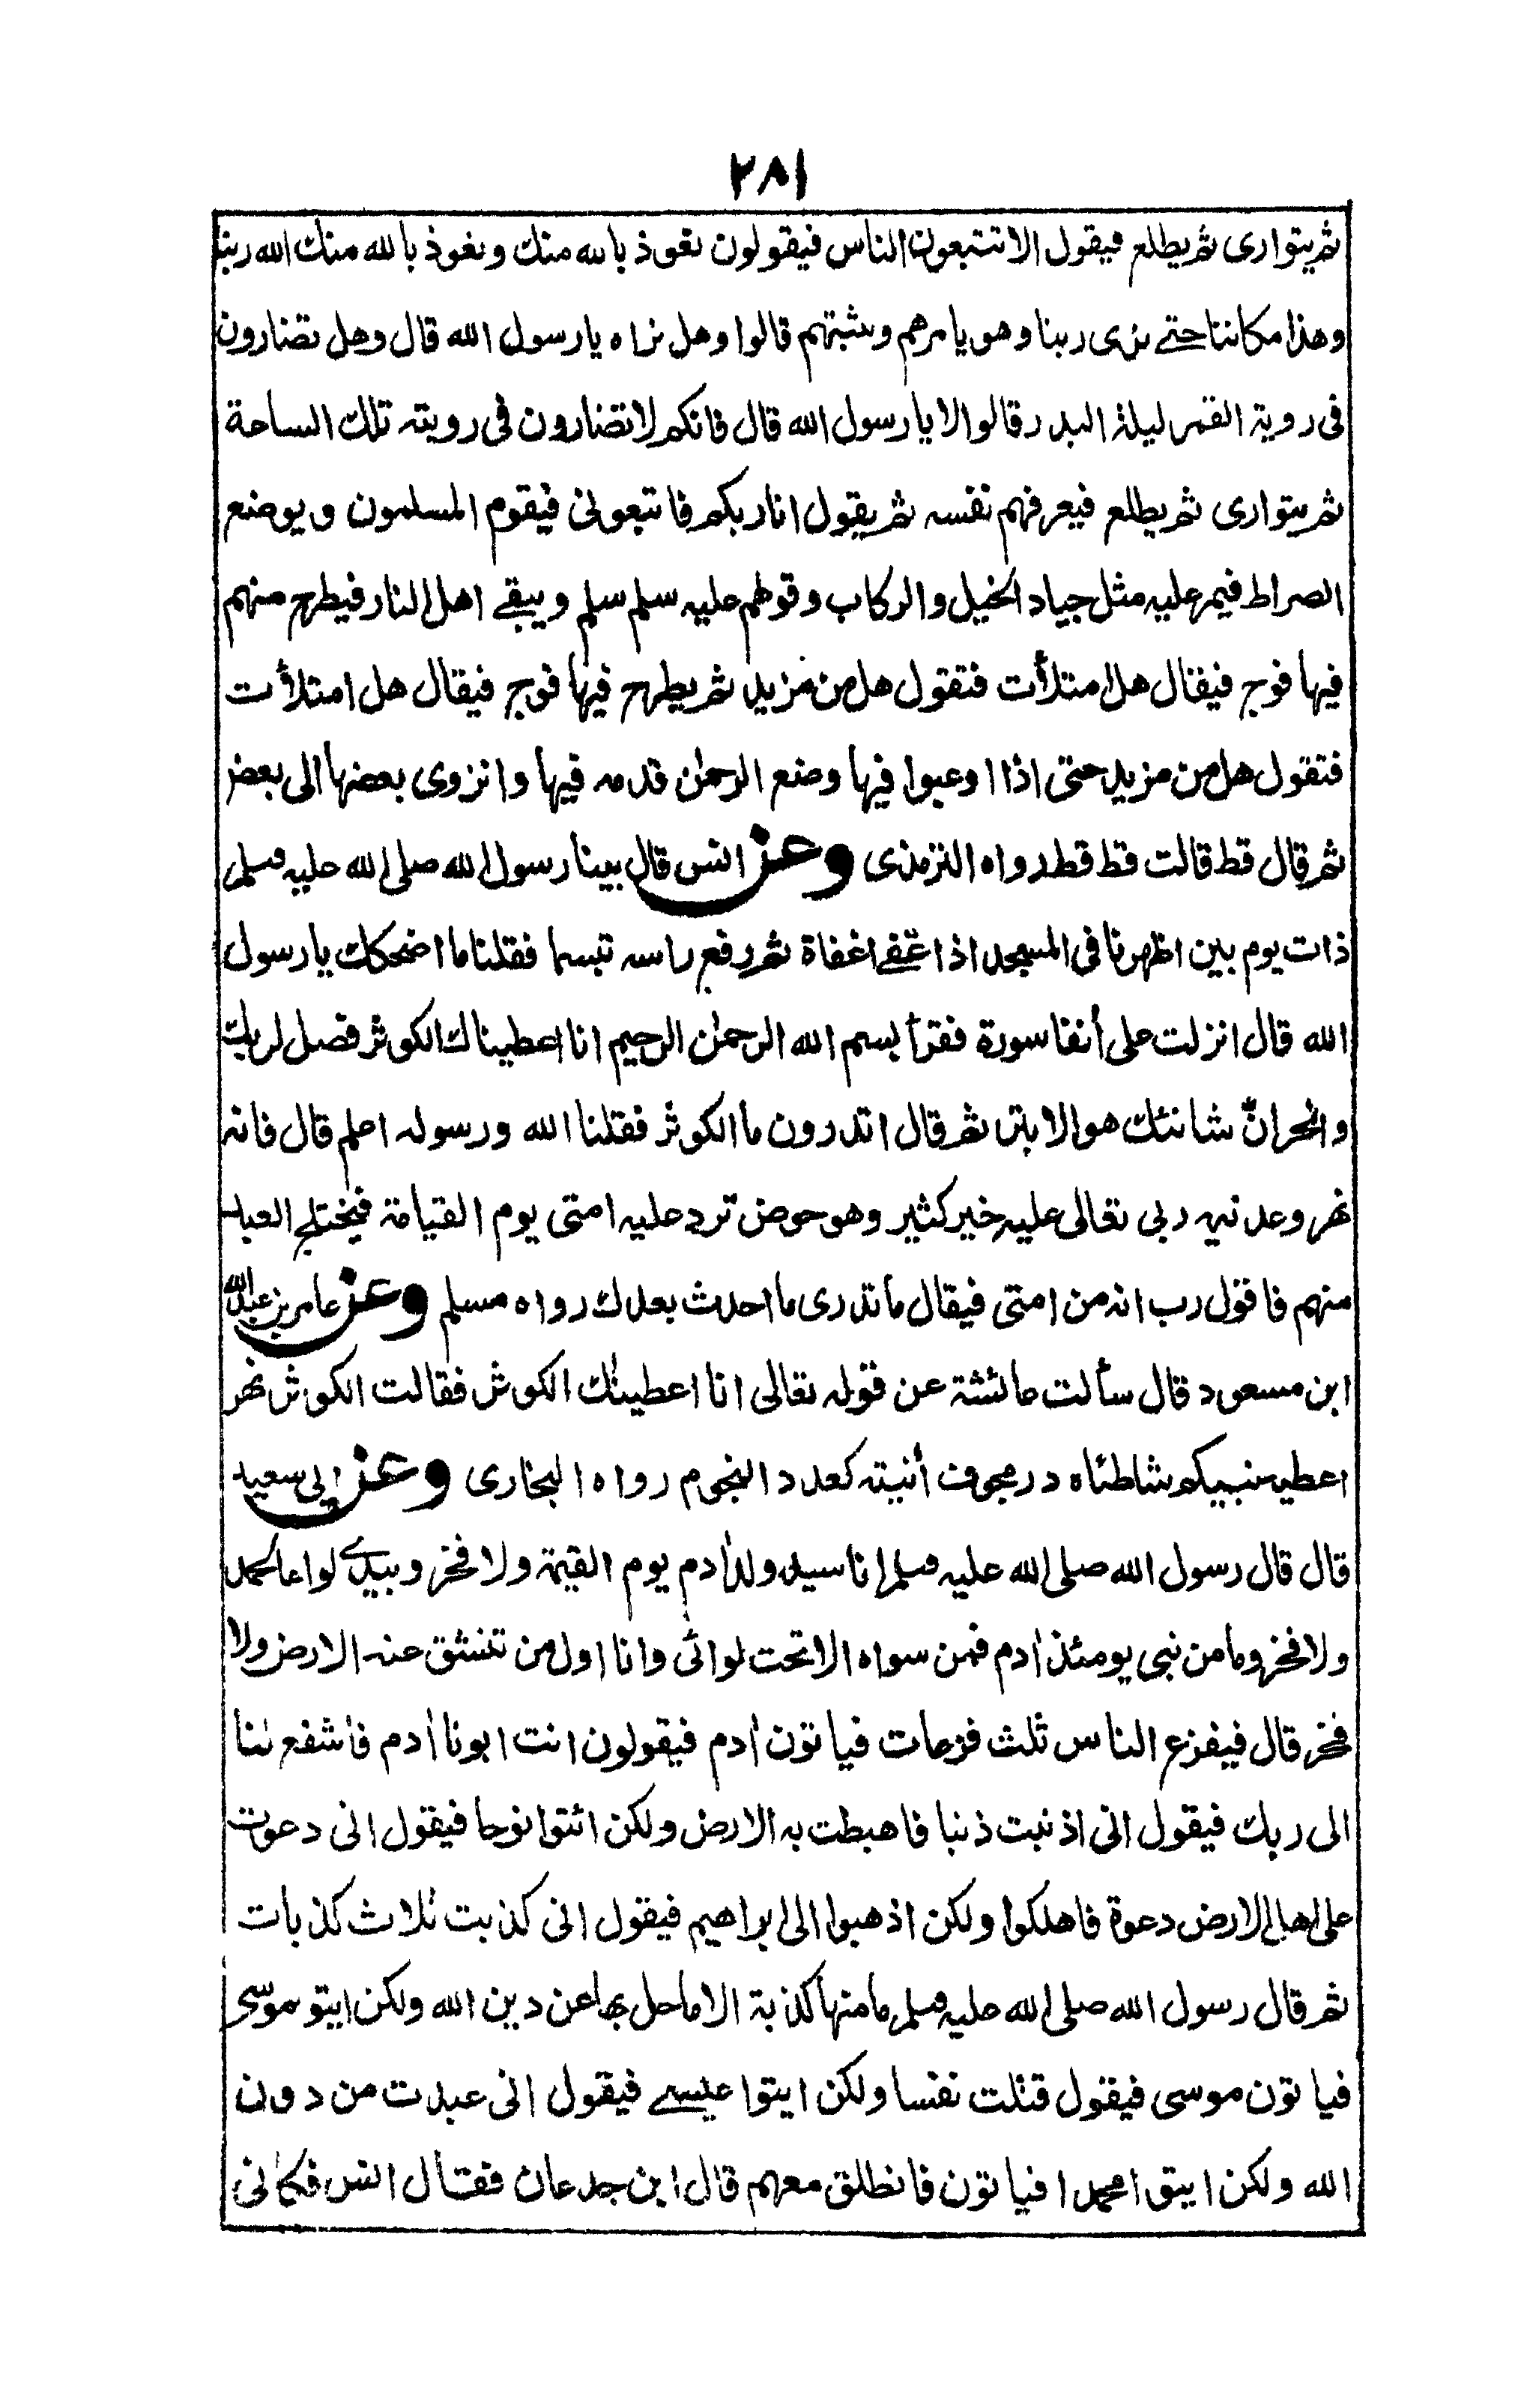 ٢٨١
ثم يتوارى ثم يطلع فيقول الا تتبعون الناس فيقولون نعوذ بالله منك ونعوذ بالله منك الله ربنا
وهذا مكاننا حتے نرى ربنا وهو يامرهم ويثبتهم قالوا وهل نراه يا رسول الله قال وهل تضارون
فى روية القمر ليلة البدر قالوا لا يا رسول الله قال فانكم لا تضارون فى رويته تلك الساعة
ثم يتوارى ثم يطلع فيعرفهم نفسه ثم يقول انا ربكم فاتبعونى فيقوم المسلمون ويوضع
الصراط فيمر عليه مثل جياد الخيل والركاب وقولهم عليه سلم سلم ويبقے اهل النار فيطرح منهم
فيها فوج فيقال هل امتلأت فتقول هل من مزيد ثم يطرح فيها فوج فيقال هل امتلأت
فتقول هل من مزيد حتى اذا اوعبوا فيها وضع الرحمٰن قدمه فيها وانزوى بعضها الى بعض
ثم قال قط قالت قط قط رواه الترمذى وعن انس قال بينا رسول الله صلى الله عليه وسلم
ذات يوم بين اظهرنا فى المسجد اذ اغفے اغفاة ثم رفع راسه تبسما فقلنا ما اضحكك يا رسول
الله قال انزلت على أنفا سورة فقرأ بسم الله الرحمٰن الرحيم انا اعطيناك الكوثر فصل لربك
وانحر انّ شانئك هو الابتر ثم قال اتدرون ما الكوثر فقلنا الله ورسوله اعلم قال فانه
نهر وعدنيه ربى تعالى عليه خير كثير وهو حوض ترد عليه امتى يوم القيامة فيختلج العبد
منهم فاقول رب انه من امتى فيقال ما تدرى ما احدث بعدك رواه مسلم وعن عامر بن عبد الله
ابن مسعود قال سألت عائشة عن قوله تعالى انا اعطينٰك الكوثر فقالت الكوثر نهر
اعطيه نبيكم شاطئاه در مجوف أنيته كعدد النجوم رواه البخارى وعن ابى سعيد
قال قال رسول الله صلى الله عليه وسلم انا سيد ولد اٰدم يوم القيمة ولا فخر وبيدے لواء الحمد
ولا فخر وما من نبى يومئذ اٰدم فمن سواه الا تحت لوائى وانا اول من تنشق عنه الارض ولا
فخر قال فيفزع الناس ثلث فزعات فياتون اٰدم فيقولون انت ابونا اٰدم فاشفع لنا
الى ربك فيقول انى اذنبت ذنبا فاهبطت به الارض ولكن ائتوا نوحا فيقول انى دعوت
على اهل الارض دعوة فاهلكوا ولكن اذهبوا الى ابراهيم فيقول انى كذبت ثلاث كذبات
ثم قال رسول الله صلى الله عليه وسلم ما منها كذبة الا ماحل بها عن دين الله ولكن ايتو موسى
فياتون موسى فيقول قتلت نفسا ولكن ايتوا عيسے فيقول انى عبدت من دون
الله ولكن ايتوا محمدا فياتون فانطلق معهم قال ابن جدعان فقال انس فكانى